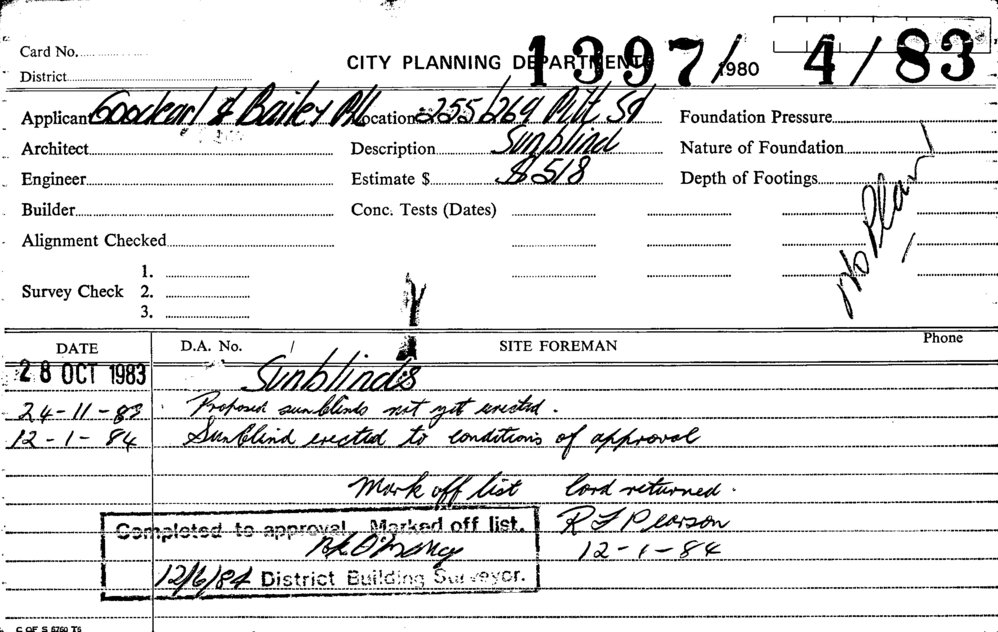 Card No.
CITY PLANNING DEPARTMENT 1397/1980 4/83
District
Applicant Goodearl & Bailey P/L Location 255/269 Pitt St Foundation Pressure
Architect Description Sunblind Nature of Foundation
Engineer Estimate $ $518 Depth of Footings
Builder Conc. Tests (Dates)
No Plan
Alignment Checked
1.
Survey Check 2.
3.
DATE D.A. No. / SITE FOREMAN Phone
28 OCT 1983 Sunblinds
24-11-83 Proposed sunblinds not yet erected.
12-1-84 Sunblind erected to conditions of approval
Mark off list Card returned.
R F Pearson
12-1-84
Completed to approval. Marked off list.
12/6/84 District Building Surveyor.
C OF S 6760 T6